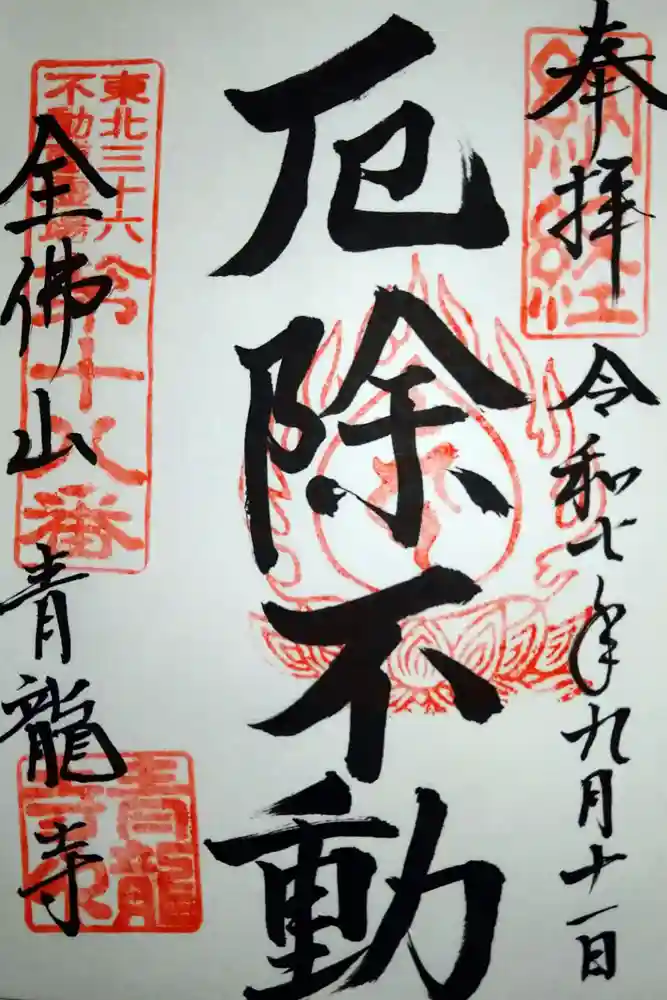 奉拝
納経
令和七年九月十一日
厄除不動
東北三十六
不動尊霊場
第十八番
金佛山
青龍寺
青龍
寺印